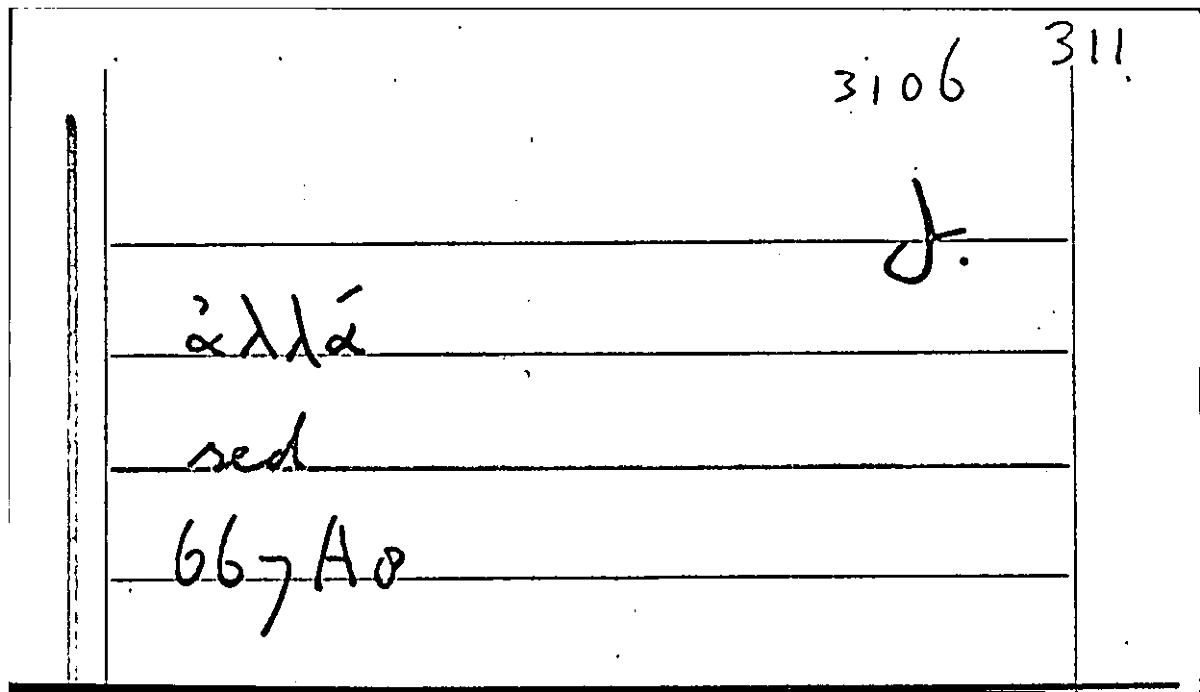 311
3106
ἀλλά
sed
667A8